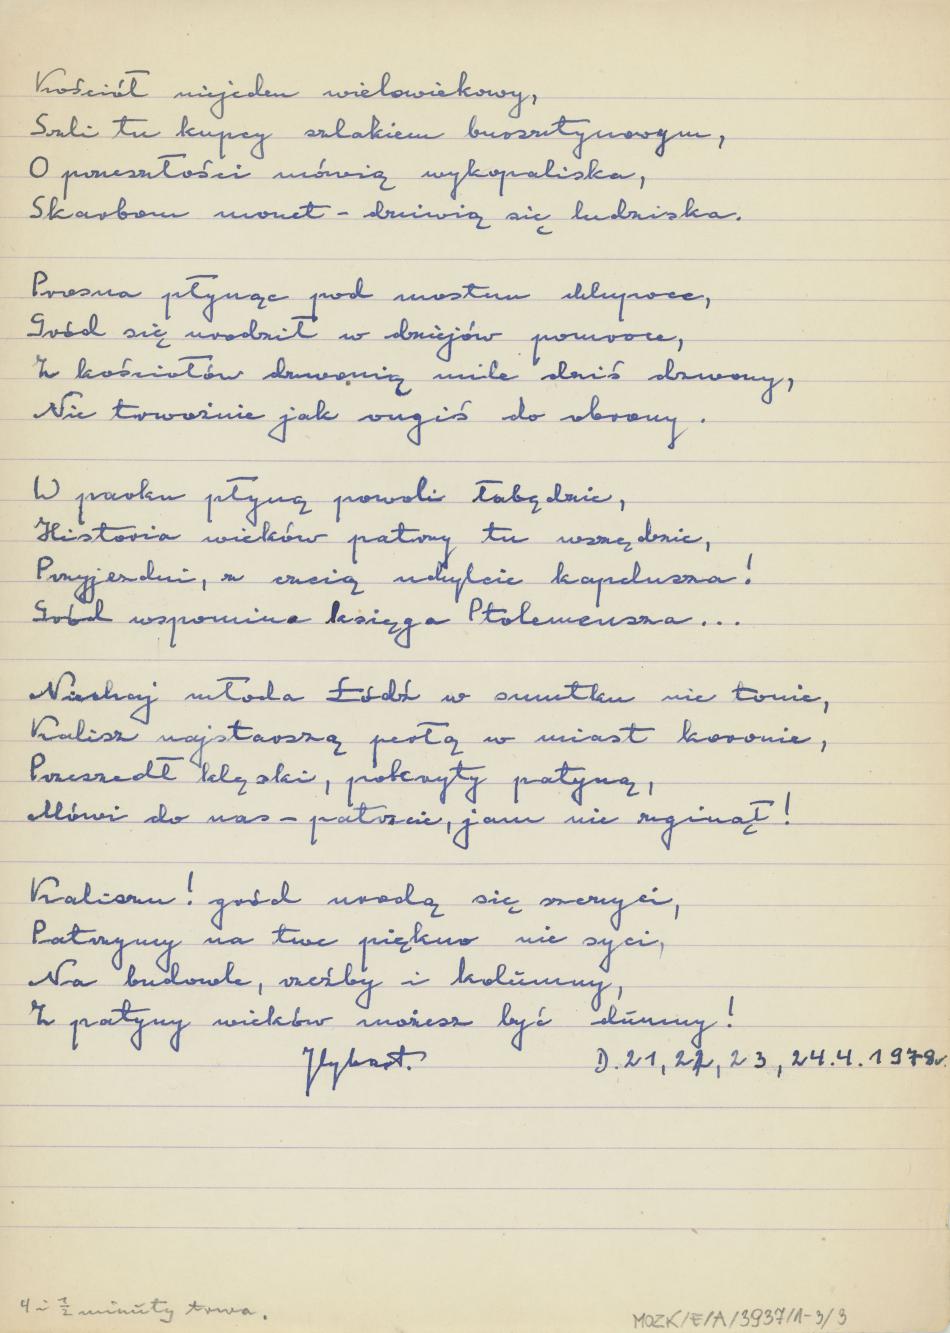 Kościół niejeden wielowiekowy,
Szli tu kupcy szlakiem bursztynowym,
O przeszłości mówią wykopaliska,
Skarbom monet - dziwią się ludziska.
Prosna płynąc pod mostem chlupoce,
Gród się urodził w dziejów pomroce,
Z kościołów dzwonią mile dziś dzwony,
Nie trwożnie jak ongiś do obrony.
W parku płyną powoli łabędzie,
Historia wieków patrzy tu wszędzie,
Przyjezdni, z czcią uchylcie kapelusza!
Gród wspomina księga Ptolemeusza...
Niechaj młoda Łódź w smutku nie tonie,
Kalisz najstarszą perłą w miast koronie,
Przeszedł klęski, pokryty patyną,
Mówi do nas - patrzcie, jam nie zginął!
Kaliszu! gród urodą się szczyci,
Patrzymy na twe piękno nie syci,
Na budowle, rzeźby i kolumny,
Z patyny wieków możesz być dumny!
D. 21, 22, 23, 24.4.1978r.
4 i 1/2 minuty trwa.
MOZK/E/A/3937/1-3/3